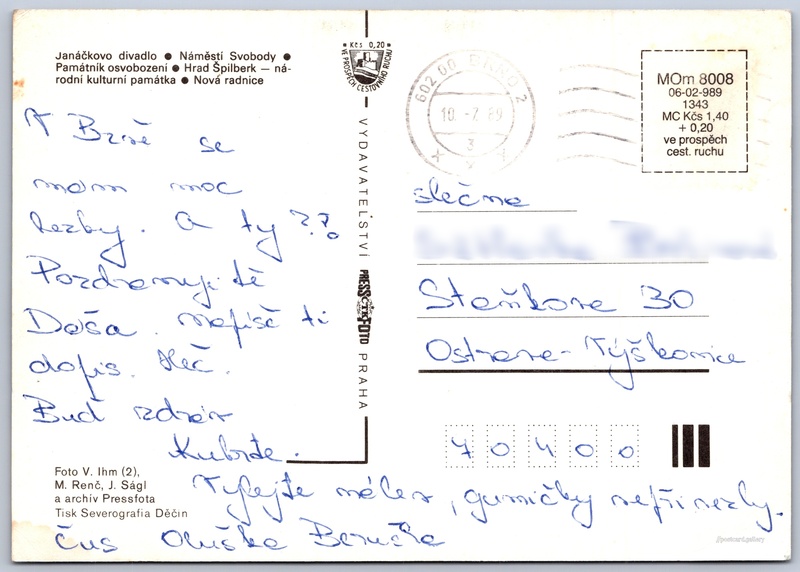 Janáčkovo divadlo ● Náměstí Svobody ●
Památník osvobození ● Hrad Špilberk — ná-
rodní kulturní památka ● Nová radnice
V Brně se
mám moc
hezky. A ty??
Pozdravuji tě
Dáša. napiš ti
dopis. Heč.
Buď zdráv
Kubrt
Foto V. Ihm (2),
M. Renč, J. Ságl
a archiv Pressfota
Tisk Severografia Děčín
, gumičky nepřivezly.
čus Beruška
Kčs 0,20
VE PROSPĚCH CESTOVNÍHO RUCHU
VYDAVATELSTVÍ
PRESSFOTO
ČTK
PRAHA
602 00 BRNO 2
10.-2.89
3
MOm 8008
06-02-989
1343
MC Kčs 1,40
+ 0,20
ve prospěch
cest. ruchu
slečna
Staňkova 30
Ostrava-Výškovice
70400
postcard.gallery